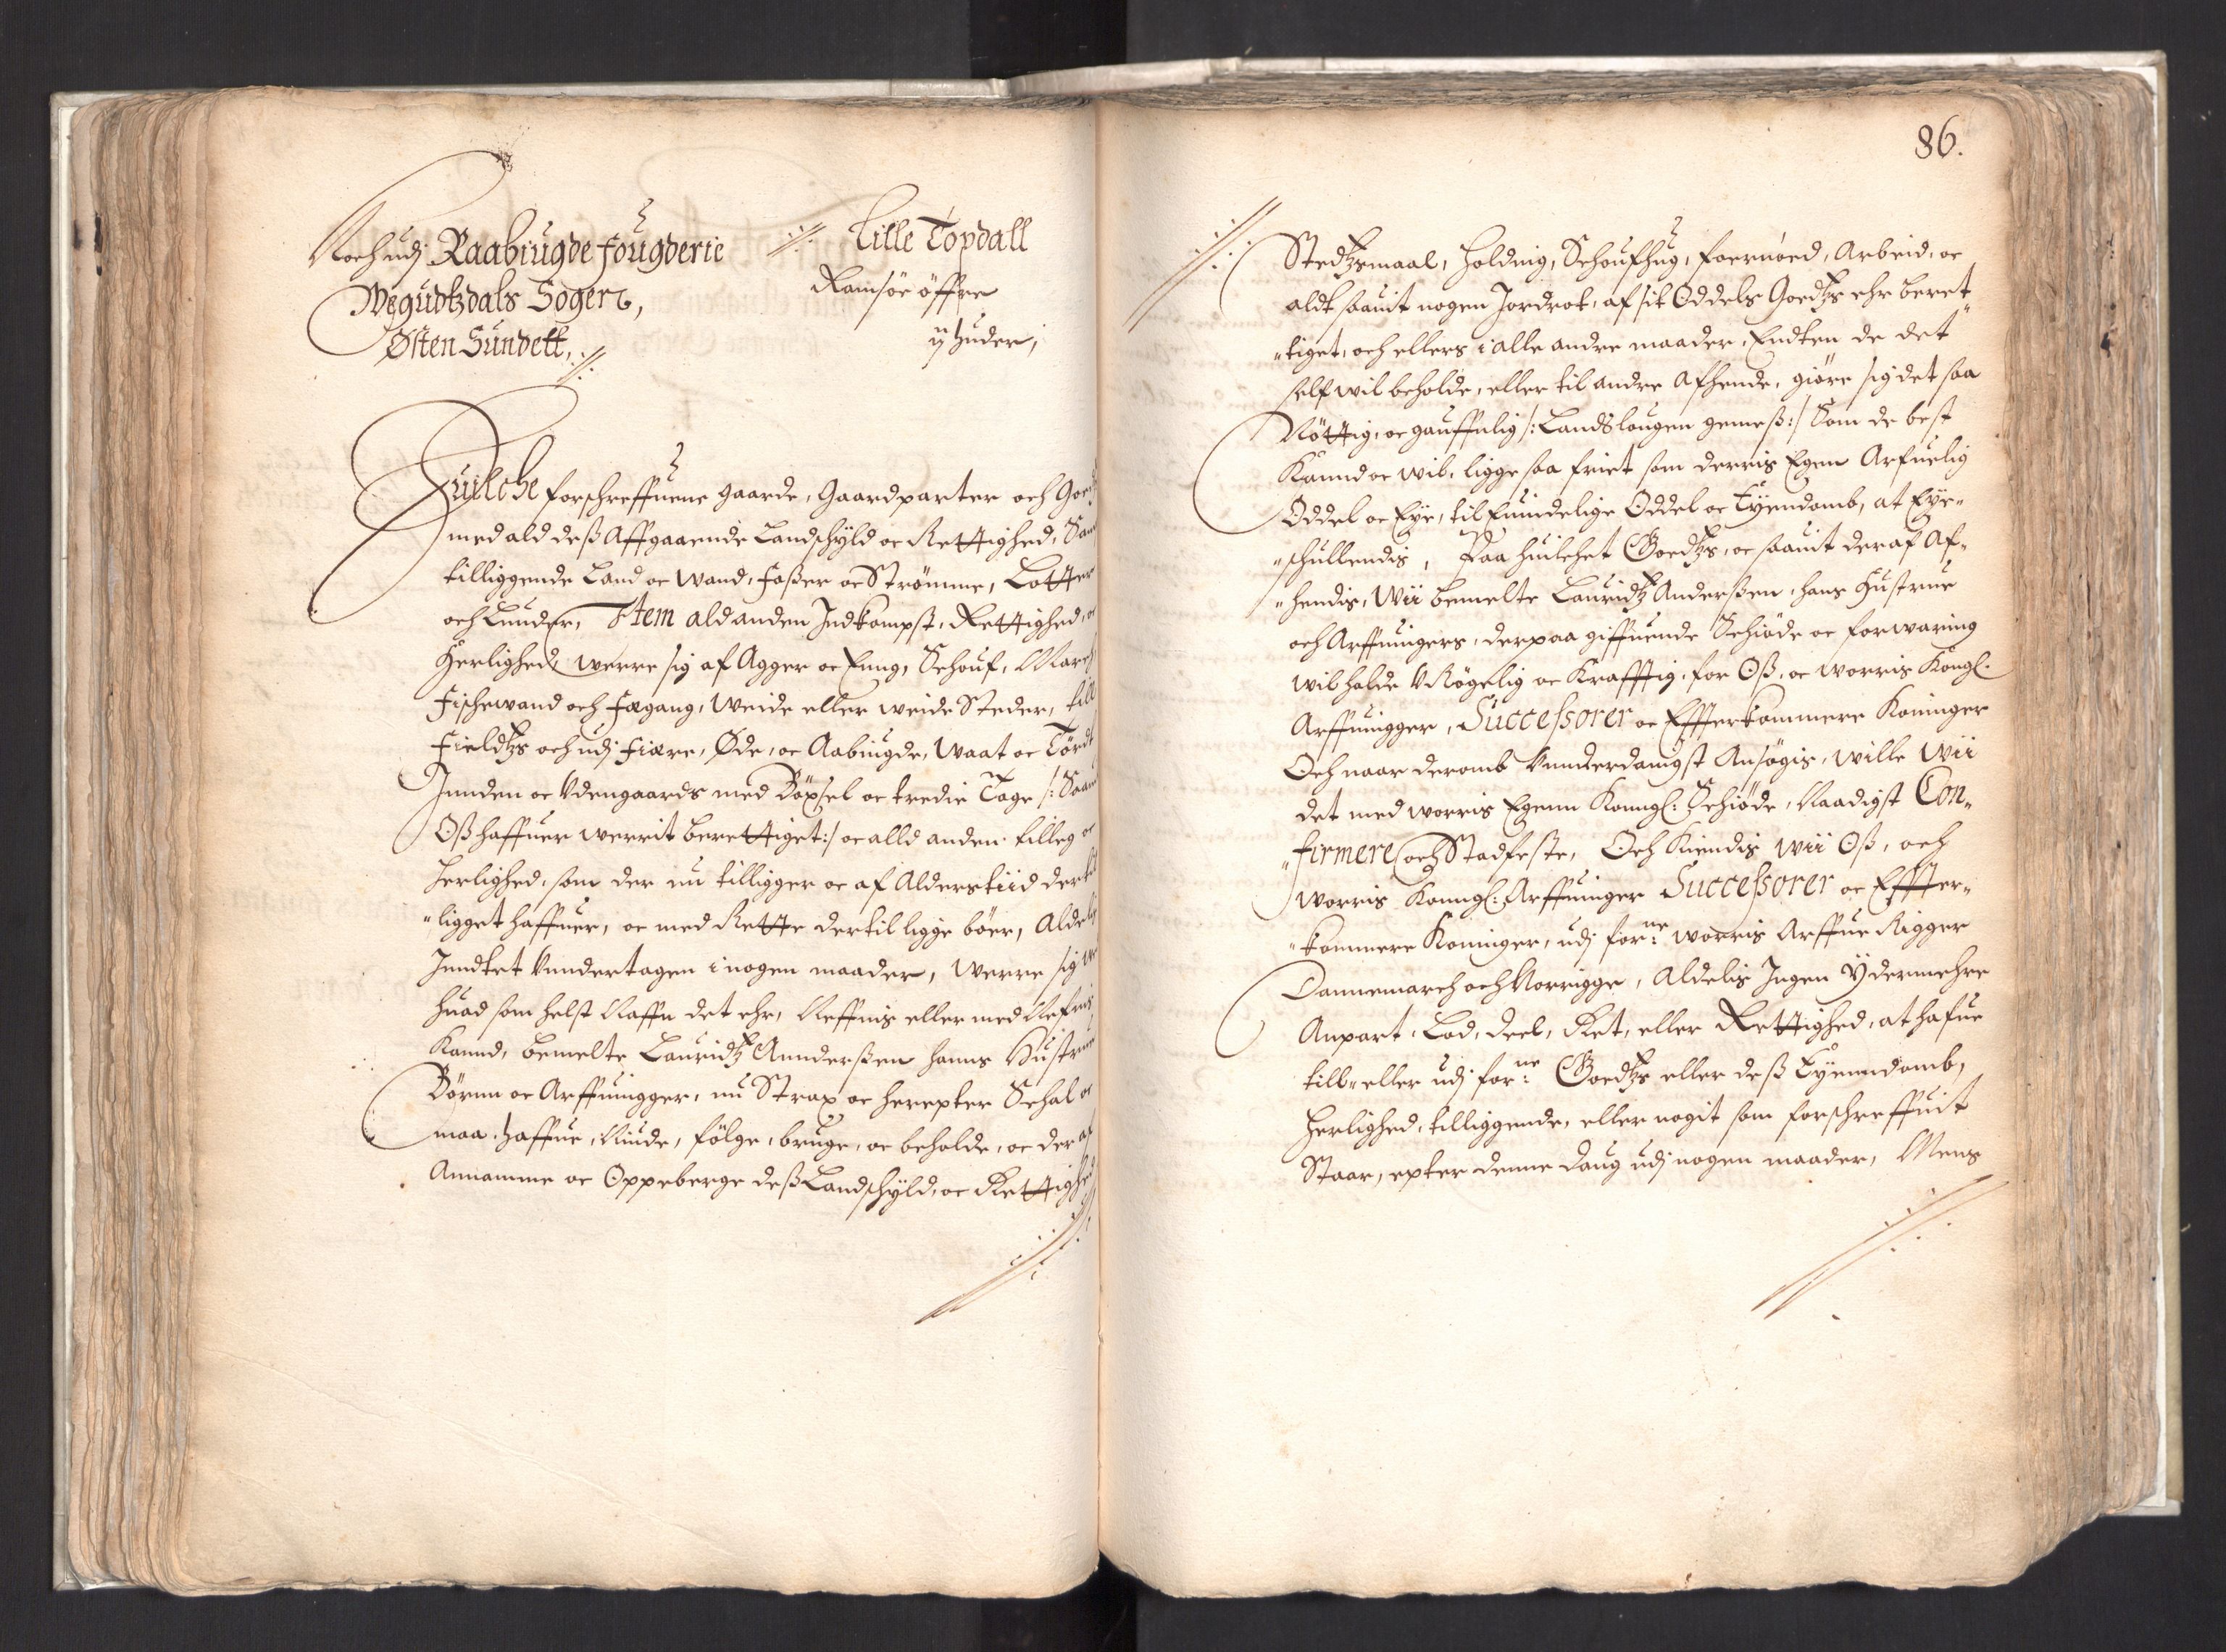 Noch udj Raabiugde fougderie
Wegudtzdals Sogen,
Østen Sundett,
Lille Topdall
Ramsöe öffre
ij huder,
Huilche forschreffuene gaarde, Gaardparter och Goedtz
med ald deß Affgaaende Landschyld oc Rettighed, Samt
tilliggende Land oc Wand, Foßer oc Strömme, Lotter
och Lunder, Item ald anden Indkompst, Rettighed, oc
Herlighed, werre sig af Agger oc Enng, Schouf, March,
Fischewand och Fægang, Weide eller weide Steder, till
Fieldtzs och udj Fiære, Øde, oc Aabiugde, Waat oc Tördt
Innden oc Vdengaards med Böxsel oc tredie Tage /: Saam
Oß haffuer werrit berettiget :/ oc alld anden tilleg oc
Herlighed, som der nu tilligger oc af Alderstiid dertil
"ligget haffuer, oc med Rette dertil ligge böer, Aldelis
Inndtet Vnndertagen i nogen maader, werre sig
huad som helst Naffn det ehr, Neffnis eller med Nefnis
Kannd, bemelte Lauridtz Annderßen hanns Hustrue
Börnn oc Arffuingger, nu Strax oc herepter Schal oc
maa haffue, Niude, fölge, bruge, oc beholde, oc der af
Annamme oc Oppeberge deß Landschyld, oc Rettighed
86.
Stedtzsmaal, holding, Schoufhug, foernöed, Arbeid, oc
aldt saauit nogen Jordrot, af sit Oddels Goedtzs ehr beret"
"tiget, och ellers i alle andre maader, Endten de det
self wil beholde, eller til andre Afhende, giöre sig det saa
Nöttig, oc gauffnlig /: Landslougen gemeß :/ Som de best
Kannd oc wil, ligge saa friet som derris Egen Arfuelig
Oddel oc Eye, til Euindelige Oddel oc Eyendomb, at Eye"
"schullendis, Paa huilchet Goedtzs, oc saauit deraf Af"
"hendis, Wii bemelte Lauridtz Anderßen, hans Hustrue
och Arffuingers, derpaa giffuende Schiöde oc forwaring
wil holde VRögelig oc Krafftig, for Oß, oc worris Kongl.
Arffuingger, Successorer oc Effterkommere Koninger
Och naar deromb Vnnderdanigst Ansögis, wille Wii
det med worris Egenn Konngl: Schiöde, Naadigst Con"
"firmere och Stadfeste, Och Kiendis Wii Oß, och
worris Konngl: Arffuinger Successorer oc Effter"
"kommere Koninger, udj for:ne worris Arffue Rigger
Dannemarch och Norrigge, Aldelis Ingen Ydermehre
Anpart, Lod, deel, Ret, eller Rettighed, at hafue
till" eller udj for:ne Goedtzs eller deß Eyenndomb,
Herlighed, tilliggende, eller nogit som forschreffuit
Staar, epter denne daug udj nogen maader, Mens